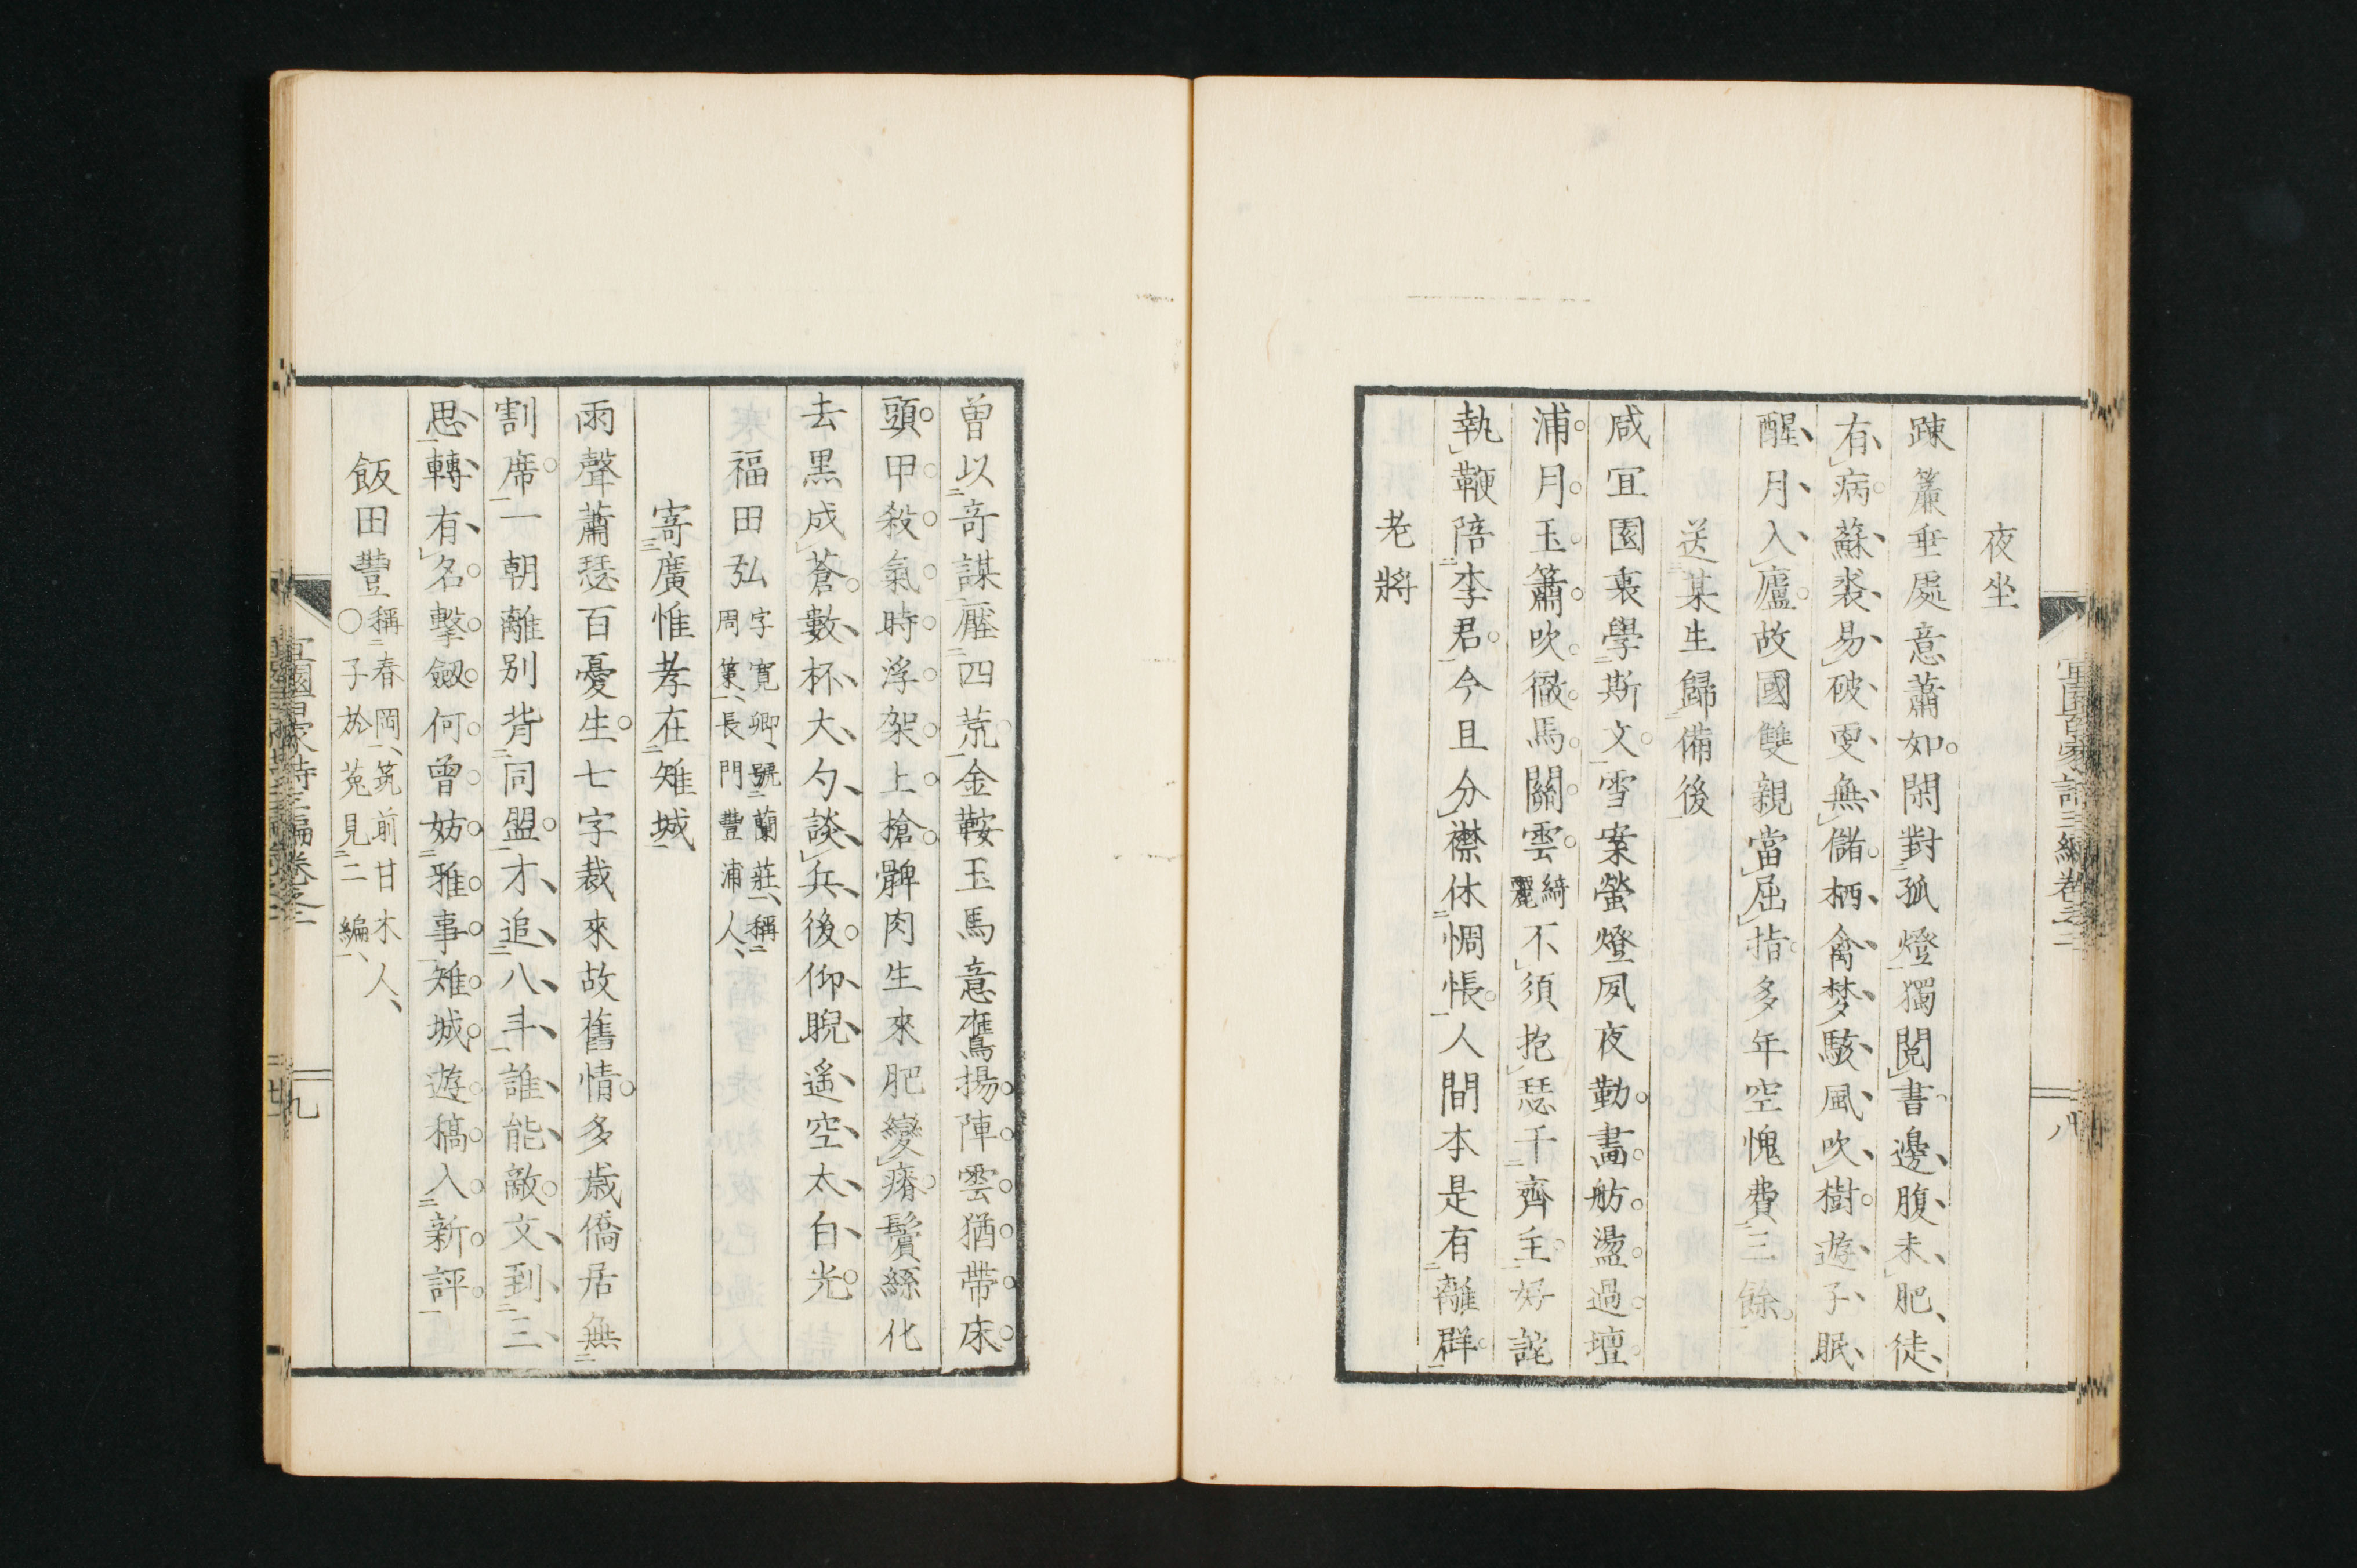 夜坐
踈簾垂處意蕭如閑對孤燈獨閲書邊腹未肥徒
有病蘇裘易破更無儲栖禽梦駭風吹樹遊子眠
醒月入廬故國雙親當屈指多年空愧費三餘
送某生歸備後
咸宜園裏學斯文雪案螢燈夙夜勤畵舫盪過壇
浦月玉簫吹徹馬關雲綺麗不須抱瑟干齊主好詫
執鞭陪李君今且分襟休惆悵人間本是有離群
老將
宜園百家詩三編卷之二
八
曽以竒謀壓四荒金鞍玉馬意鷹揚陣雲猶帶床
頭甲殺氣時浮架上槍髀肉生來肥變瘠鬢絲化
去黒成蒼數杯大勺談兵後仰睨遙空太白光
福田弘字寛卿、號蘭莊、稱
周菓、長門豐浦人、
寄廣惟孝在雉城
雨聲蕭瑟百憂生七字裁來故舊情多歳僑居無
割席一朝離別背同盟才追八斗誰能敵文到三
思轉有名擊劔何曽妨雅事雉城遊稿入新評
飯田豐稱春岡、筑前甘木人、
〇子於菟見二編、
宜園百家詩三編卷之二
九